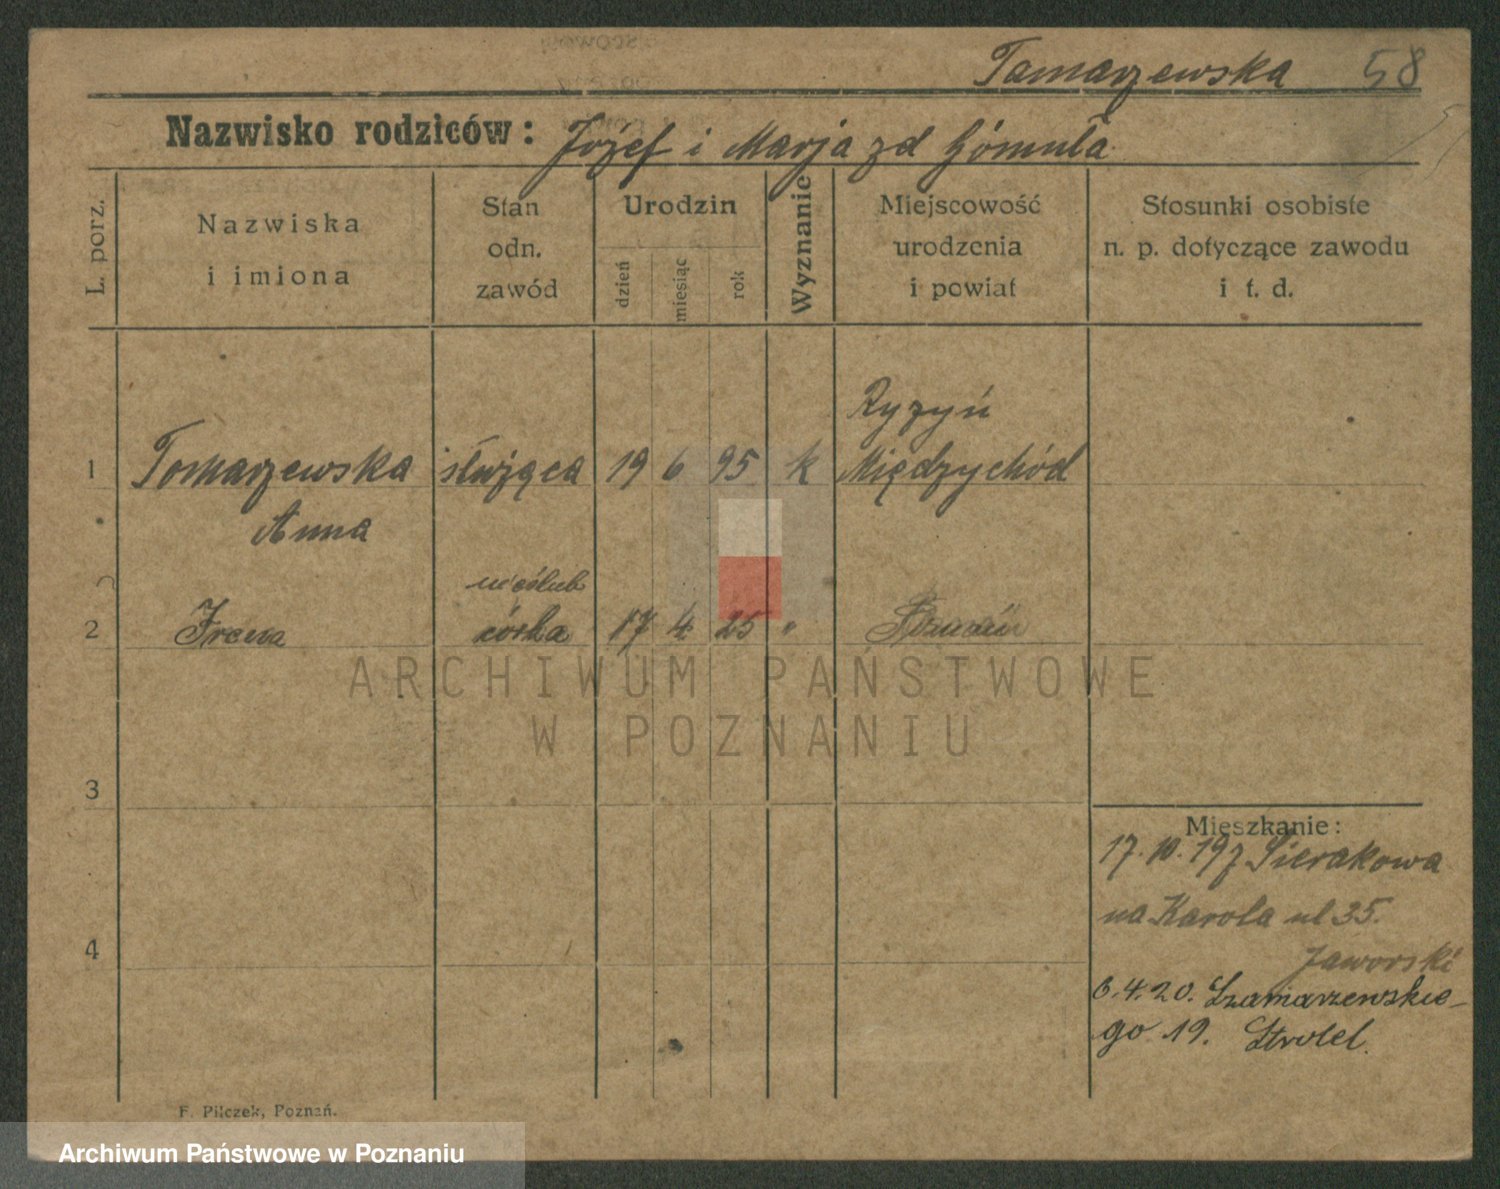 Tomarzewska 58
Nazwisko rodziców: Józef i Marja zd Gómuła
L. porz.
Nazwiska
i imiona
Stan
odn.
zawód
Urodzin
dzień
miesiąc
rok
Wyznanie
Miejscowość
urodzenia
i powiat
Stosunki osobiste
n. p. dotyczące zawodu
i t. d.
Ryzyń
1 Tomarzewska służąca 19 6 95 k Międzychód
Anna
nieślub
2 Irena córka 17 4 25 " Poznań
ARCHIWUM PAŃSTWOWE
W POZNANIU
3
Mieszkanie:
17. 10. 19 z Sierakowa
na Karola ul 35.
4
Jaworski
6. 4. 20. Szamarzewskie-
go 19. Strolel.
F. Pilczek, Poznań.
Archiwum Państwowe w Poznaniu